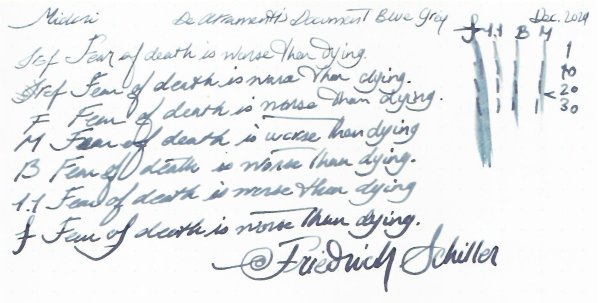 Midori De Atramentis Document Blue Grey Dec. 2019
f 1.1 B M
Fear of death is worse than dying. 1
Fear of death is worse than dying. 10
F Fear of death is worse than dying. 20
30
M Fear of death is worse than dying
B Fear of death is worse than dying.
1.1 Fear of death is worse than dying
f Fear of death is worse than dying.
@Friedrich Schiller